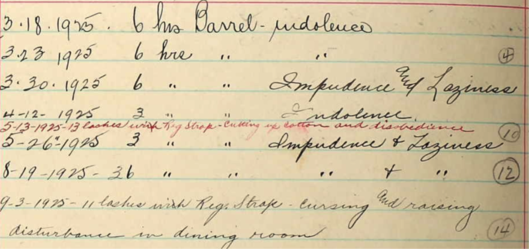 3.18.1925. 6 hrs Barrel - indolence
3.23 1925 6 hrs " " 4
3.30.1925 6 " " Impudence and Laziness
4-12-1925 3 " " Indolence.
5-13-1925-13 lashes with Reg Strap - Cutting up cotton and disobedience 10
5-26-1925 3 " " Impudence & Laziness
8-19-1925-36 " " " & " 12
9-3-1925-11 lashes with Reg. Strap - cursing and raising
disturbance in dining room 14